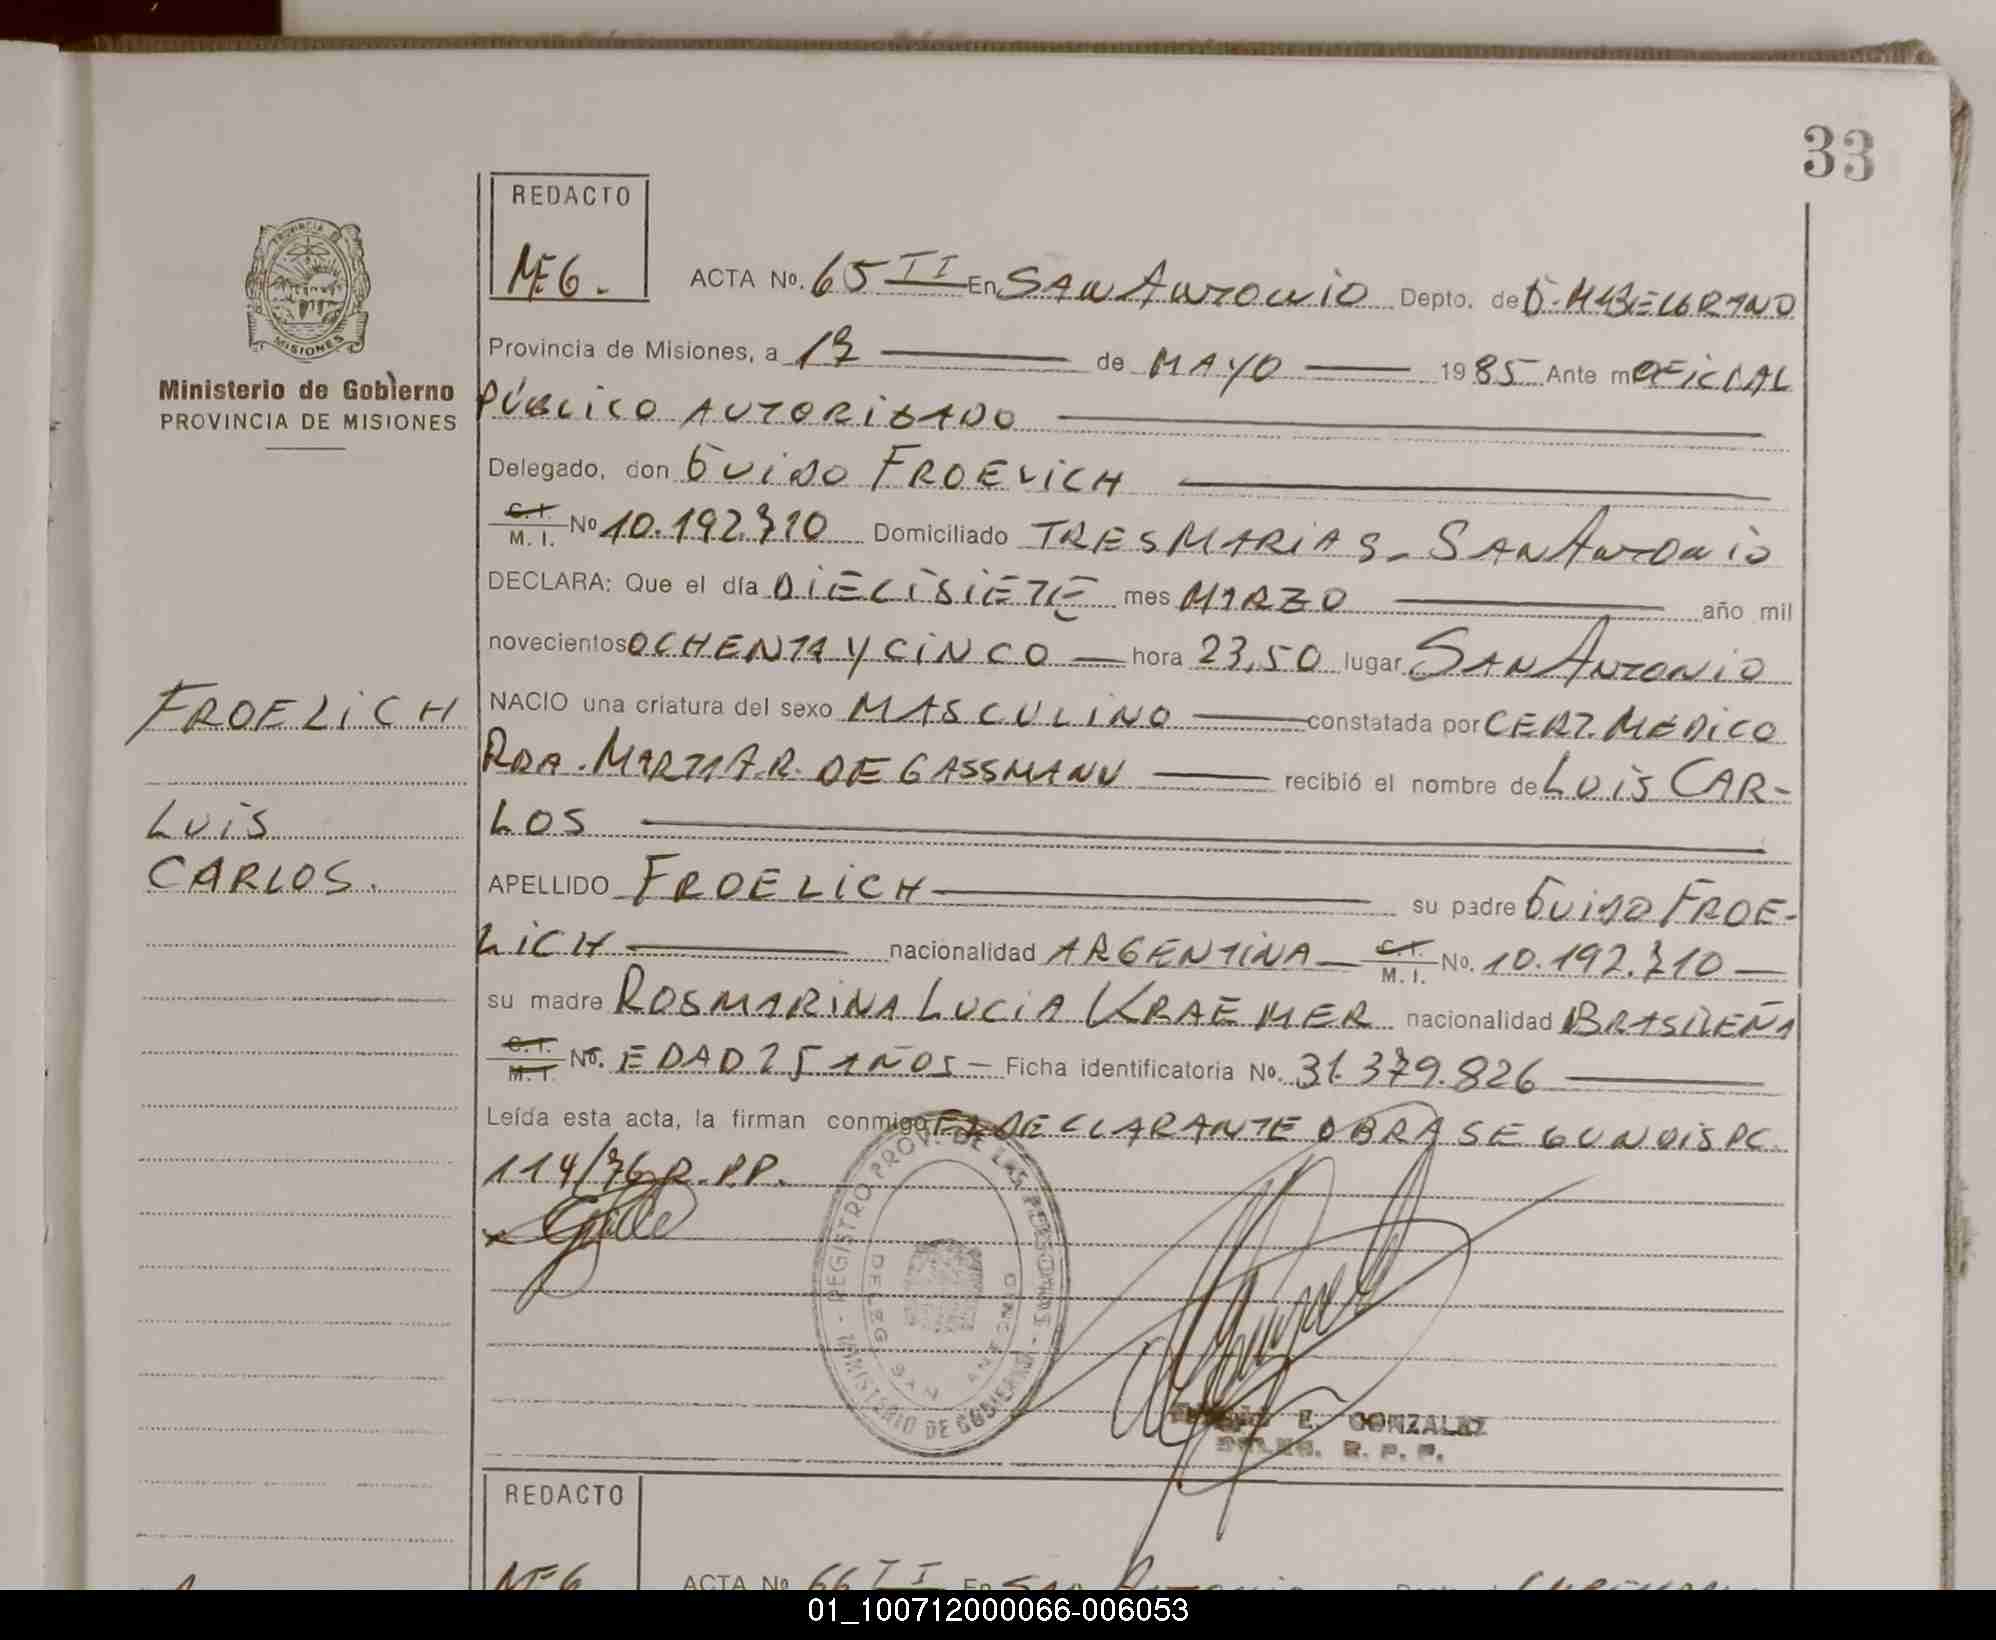 33
REDACTO
M.E.G.
ACTA No. 65 II En SAN ANTONIO Depto. de G. M. BELGRANO
PROVINCIA DE
MISIONES
Ministerio de Gobierno
PROVINCIA DE MISIONES
Provincia de Misiones, a 13 de MAYO 1985 Ante mi OFICIAL
PÚBLICO AUTORIZADO
Delegado, don GUIDO FROELICH
C. I. M. I. No 10.192.710 Domiciliado TRES MARIAS - SAN ANTONIO
DECLARA: Que el día DIECISIETE mes MARZO año mil
novecientos OCHENTA Y CINCO hora 23,50 lugar SAN ANTONIO
NACIO una criatura del sexo MASCULINO constatada por CERT. MEDICO
RDA. MARTA R. DE GASSMANN recibió el nombre de LUIS CAR-
LOS
FROELICH
LUIS
CARLOS.
APELLIDO FROELICH su padre GUIDO FROE-
LICH nacionalidad ARGENTINA C. I. M. I. No. 10.192.710
su madre ROSMARINA LUCIA KRAEMER nacionalidad BRASILEÑA
C. I. M. I. No. EDAD 25 AÑOS - Ficha identificatoria No. 31.379.826
Leída esta acta, la firman conmigo EL DECLARANTE OBRA SEGUN DISPC.
114/76 R.P.P.
REGISTRO PROV. DE LAS PERSONAS
DELEG. SAN ANTONIO
MINISTERIO DE GOBIERNO
E. GONZALEZ
DELEG. R. P. P.
REDACTO
M.E.G
ACTA No 66 II En SAN ANTONIO
01_100712000066-006053